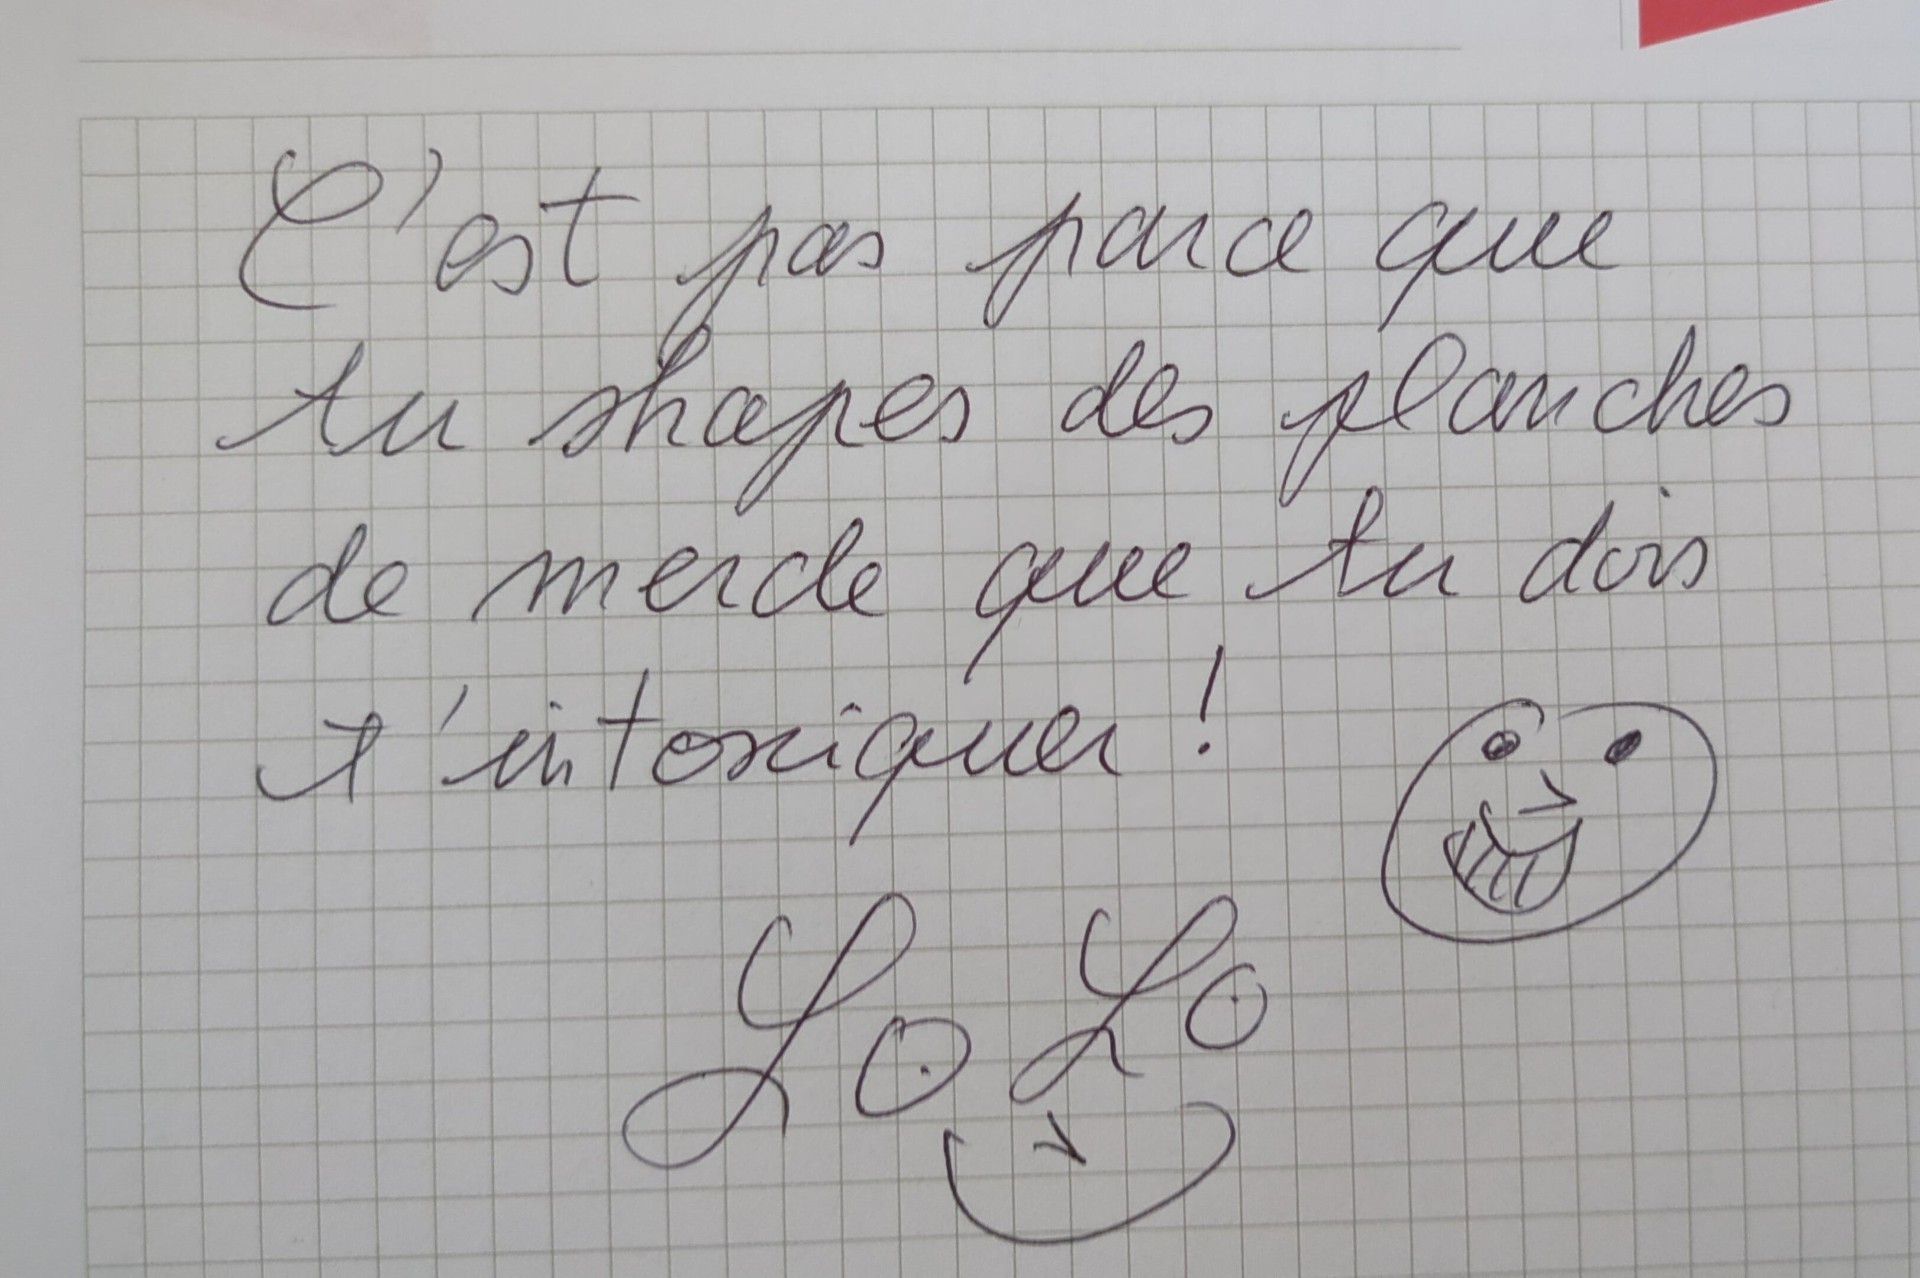 C'est pas parce que
tu shapes des planches
de merde que tu dois
t'intoxiquer !
LoLo